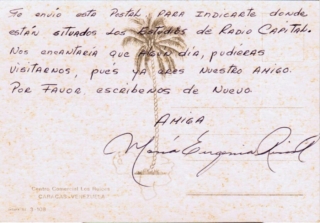 Te envío esta Postal para indicarte donde
están situados los Estudios de Radio Capital.
Nos encantaría que algún día, pudieras
visitarnos, pués ya eres nuestro amigo.
Por favor escríbenos de Nuevo.
Amiga
María Eugenia